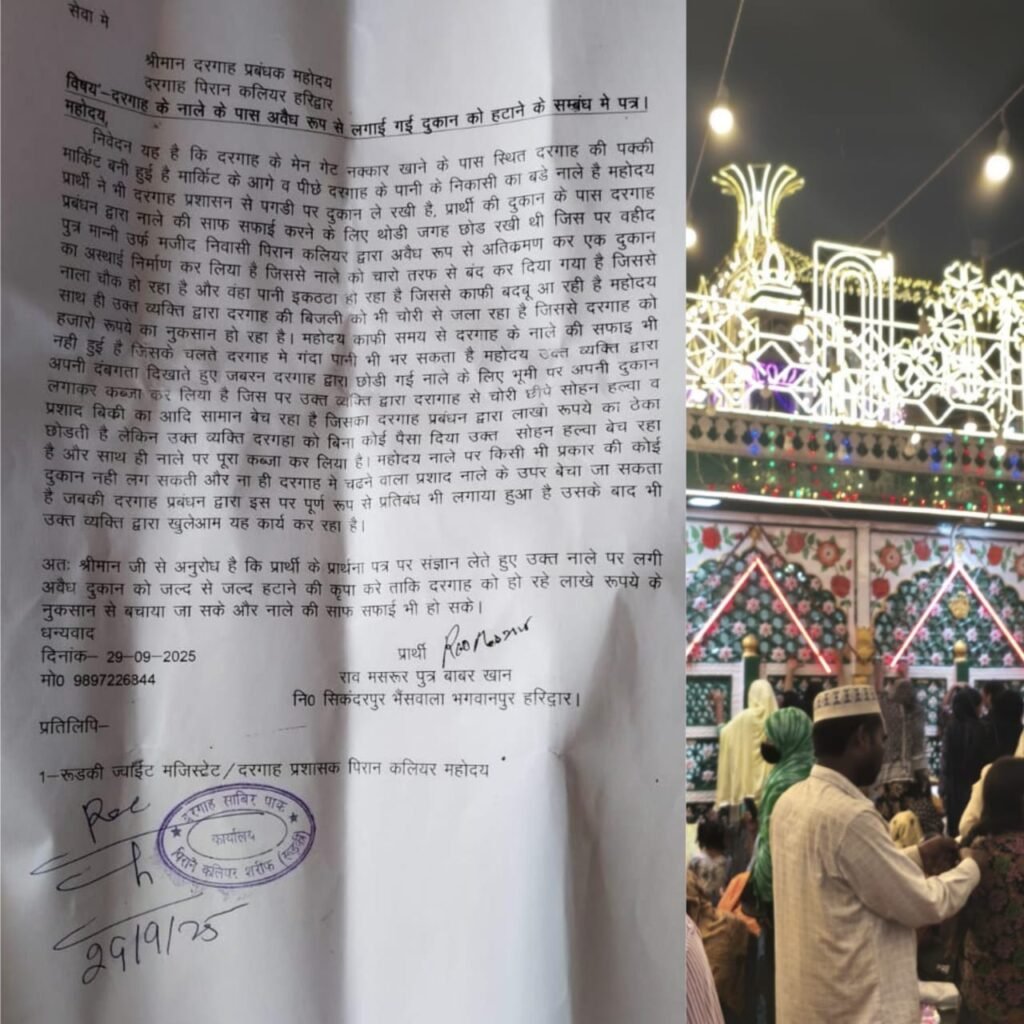 सेवा मे
श्रीमान दरगाह प्रबंधक महोदय
दरगाह पिरान कलियर हरिद्वार
विषय–दरगाह के नाले के पास अवैध रूप से लगाई गई दुकान को हटाने के सम्बंध मे पत्र।
महोदय,
निवेदन यह है कि दरगाह के मेन गेट नक्कार खाने के पास स्थित दरगाह की पक्की
मार्किट बनी हुई है मार्किट के आगे व पीछे दरगाह के पानी के निकासी का बडे नाले है महोदय
प्रार्थी ने भी दरगाह प्रशासन से पगडी पर दुकान ले रखी है, प्रार्थी की दुकान के पास दरगाह
प्रबंधन द्वारा नाले की साफ सफाई करने के लिए थोडी जगह छोड रखी थी जिस पर वहीद
पुत्र मान्नी उर्फ मजीद निवासी पिरान कलियर द्वारा अवैध रूप से अतिक्रमण कर एक दुकान
का अस्थाई निर्माण कर लिया है जिससे नाले को चारो तरफ से बंद कर दिया गया है जिससे
नाला चौक हो रहा है और वंहा पानी इकठठा हो रहा है जिससे काफी बदबू आ रही है महोदय
साथ ही उक्त व्यक्ति द्वारा दरगाह की बिजली को भी चोरी से जला रहा है जिससे दरगाह को
हजारो रूपये का नुकसान हो रहा है। महोदय काफी समय से दरगाह के नाले की सफाइ भी
नही हुई है जिसके चलते दरगाह मे गंदा पानी भी भर सकता है महोदय उक्त व्यक्ति द्वारा
अपनी दबंगता दिखाते हुए जबरन दरगाह द्वारा छोडी गई नाले के लिए भूमी पर अपनी दुकान
लगाकर कब्जा कर लिया है जिस पर उक्त व्यक्ति द्वारा दरागाह से चोरी छीपे सोहन हल्वा व
प्रशाद बिकी का आदि सामान बेच रहा है जिसका दरगाह प्रबंधन द्वारा लाखो रूपये का ठेका
छोडती है लेकिन उक्त व्यक्ति दरगहा को बिना कोई पैसा दिया उक्त सोहन हल्वा बेच रहा
है और साथ ही नाले पर पूरा कब्जा कर लिया है। महोदय नाले पर किसी भी प्रकार की कोई
दुकान नही लग सकती और ना ही दरगाह मे चढने वाला प्रशाद नाले के उपर बेचा जा सकता
है जबकी दरगाह प्रबंधन द्वारा इस पर पूर्ण रूप से प्रतिबंध भी लगाया हुआ है उसके बाद भी
उक्त व्यक्ति द्वारा खुलेआम यह कार्य कर रहा है।
अतः श्रीमान जी से अनुरोध है कि प्रार्थी के प्रार्थना पत्र पर संज्ञान लेते हुए उक्त नाले पर लगी
अवैध दुकान को जल्द से जल्द हटाने की कृपा करे ताकि दरगाह को हो रहे लाखे रूपये के
नुकसान से बचाया जा सके और नाले की साफ सफाई भी हो सके।
धन्यवाद
दिनांक– 29-09-2025
प्रार्थी
मो0 9897226844
राव मसरूर पुत्र बाबर खान
नि0 सिकंदरपुर भैंसवाला भगवानपुर हरिद्वार।
प्रतिलिपि–
1–रूडकी ज्वाईट मजिस्ट्रेट/दरगाह प्रशासक पिरान कलियर महोदय
दरगाह साबिर पाक
कार्यालय
पिरान कलियर शरीफ (रूडकी)
29/9/25